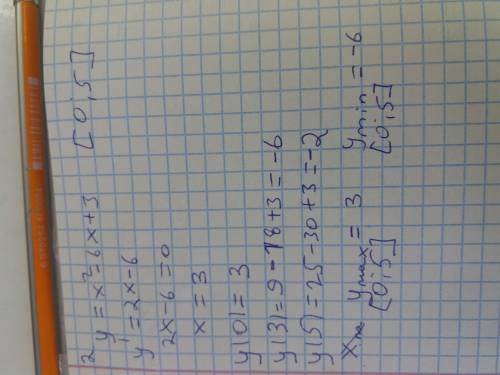 2 y = x² - 6x + 3 [0; 5]
y' = 2x - 6
2x - 6 = 0
x = 3
y(0) = 3
y(3) = 9 - 18 + 3 = -6
y(5) = 25 - 30 + 3 = -2
y max = 3 y min = -6
[0; 5] [0; 5]